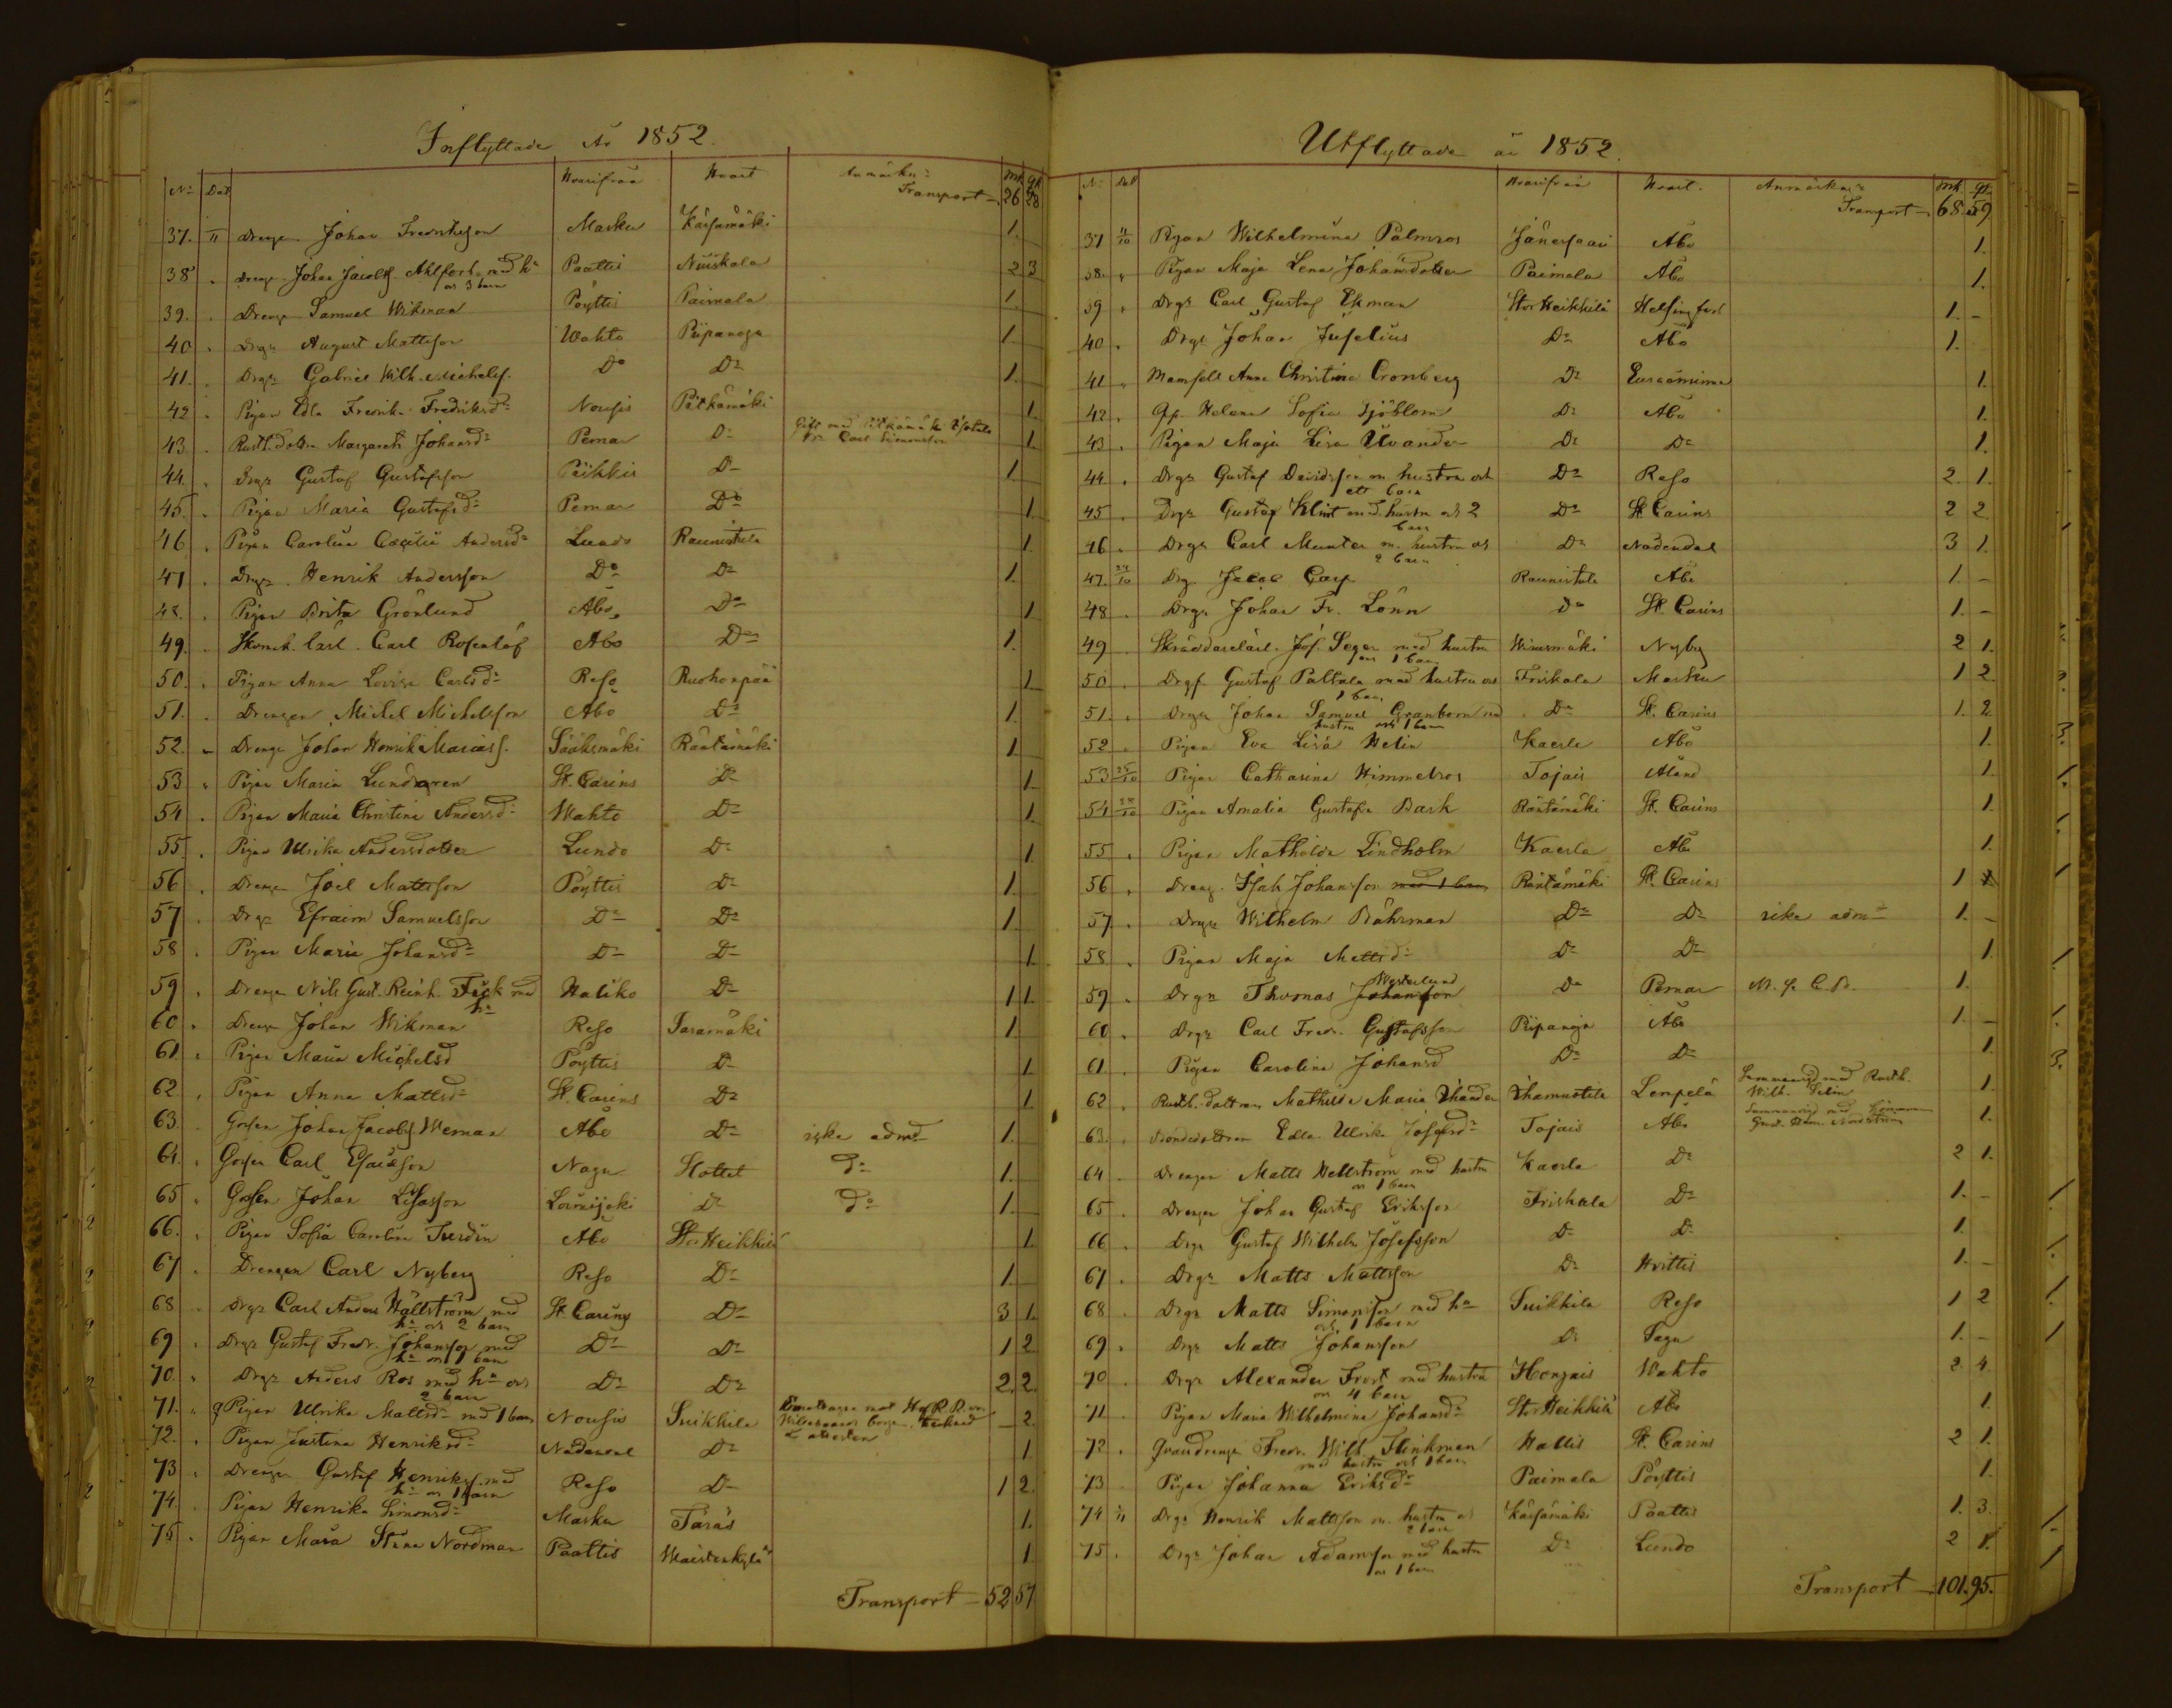 Inflyttade År 1852.
No Dat Hvarifrån Hvart Anmärkn: Mk Qk
Transport — 26 28
37. 11 Drengen Johan Fredriksson Marku Kärsämäki 1.
38 . Dreng. Johan Jacobss. Ahlfors med h:u Paattis Nuiskala 2 3
och 3 barn
39. . Drengen Samuel Wikman Pöyttis Paimala 1.
40 . Drgn August Mattsson Wahto Piipanoja 1.
41. . Drgn Gabriel Wilh. Michelss. Do Do 1.
42 . Pigan Edla Fredrika Fredriksd:r Nousis Pitkämäki 1.
43 . Rusth.dottren Margareta Johansd:r Pemar Do Gift med Pitkämäki 1.
Carl Simonsson
44. . Drgn Gustaf Gustafsson Piikkis Do 1.
45. . Pigan Maria Gustafsd:r Pemar Do 1.
46 . Pigan Carolina Cæcilia Andersd:r Lundo Raunistula 1.
47 . Drgn Henrik Andersson Do Do 1.
48. . Pigan Brita Grönlund Åbo Do 1
49. . Skomak. lärl. Carl Rosenlöf Åbo Do 1.
50. . Pigan Anna Lovisa Carlsd:r Reso Ruohonpää 1
51. . Drengen Michel Michelsson Åbo Do 1.
52. „ Drengen Johan Henrik Mariass. Sääksmäki Räntämäki 1
53 „ Pigan Maria Lundgren St. Carins Do 1.
54 . Pigan Maria Christina Andersd:r Wahto Do 1.
55. . Pigan Ulrika Andersdotter Lundo Do 1
56 . Drengen Joel Mattsson Pöyttis Do 1.
57 . Drgn Efraim Samuelsson Do Do 1.
58 . Pigan Maria Johansd:r Do Do 1.
59 . Drengen Nils Gust. Reinh. Fick med Haliko Do 1 1.
h:u
60 . Drengen Johan Wikman Reso Saramäki 1.
61. . Pigan Maria Michelsd Pöyttis Do 1
62 . Pigan Anna Mattsd:r St. Carins Do 1.
63. Gossen Johan Jacobss. Weman Åbo Do icke admd 1.
64. . Gossen Carl Esaiasson Nagu Slottet Do 1.
65 . Gossen Johan Lisasson Loimijoki Do Do 1.
66. . Pigan Sofia Carolina Åbo Stor Heikkilä 1.
67 . Drengen Carl Nyberg Reso Do 1.
68 Drgn Carl Anders Hällström med St. Carins Do 3 1.
h:u och 2 barn
69 . Drgn Gustaf Fredr. Johansson med Do Do 1 2
h:u och 1 barn
70. . Drgn Anders Ros med h:u och Do Do 2. 2.
2 barn
71. . Pigan Ulrika Mattsd:r med 1 barn Nousis Suikkila — 2.
72. . Pigan Justina Henriksd:r Nådendal Do 1
73 . Drengen Gustaf Henrikss. med Reso Do 1 2.
h:u och 1 barn
74. . Pigan Henrika Simonsd:r Marku Taras 1.
75. . Pigan Maja Stina Nordman Paattis Maisterkylä 1
Transport — 52 57
Utflyttade år 1852.
No Dat Hvarifrån Hvart. Anmärkn:r Mk. Qk.
Transport — 68. 59
37 4/10 Pigan Wilhelmina Palmros Jänessaari Åbo 1.
38. „ Pigan Maja Lena Johansdotter Paimala Åbo 1.
39 „ Drgn Carl Gustaf Ekman Stor Heikkilä Helsingfors 1. –
40. . Drgn Johan Juselius Do Åbo 1.
41 „ Mamsell Anna Christina Cronberg Do Euraåminne 1.
42. . Qp. Helena Sofia Sjöblom Do Åbo 1.
43 . Pigan Maja Lisa Uvander Do Do 1.
44 . Drgn Gustaf Davidsson m. hustru och Do Reso 2. 1.
ett barn
45 . Drgn Gustaf Klint med hustru och 2 Do St Carins 2 2
barn
46 . Drgn Carl Munter m. hustru och Do Nådendal 3 1.
2 barn
47. 24/10 Drg. Jacob Raunistula Åbo 1. –
48 . Drgn Johan Fr. Lönn Do St. Carins 1. –
49 . Skräddarelärl. Jos. Seger med hustru Nyby 2 1.
och 1 barn
50 . Drgn Gustaf Paltala med hustru och Friskala Marku 1 2
1 barn
51. . Drgn Johan Samuel Granbom med Do St. Carins 1. 2.
hustru och 1 barn
52 . Pigan Eva Lisa Helin Kaerla Åbo 1.
53 25/10 Pigan Catharina Himmelros Tojais Åland 1.
54 28/10 Pigan Amalia Gustafva Bark Räntämäki St. Carins 1.
55 . Pigan Mathilda Lindholm Kaerla Åbo 1.
56 . Dreng. Isak Johansson med 1 barn Räntämäki St. Carins 1
57. . Drgn Wilhelm Bährman Do Do icke adm:d 1. –
58 . Pigan Maja Mattsd:r Do Do 1
59 . Drgn Thomas Johansson Westerlund Do Pemar 1.
60 . Drgn Carl Fredr. Gustafsson Piipanoja Åbo 1. –
61. . Pigan Carolina Johansd Do Do 1.
62 . Rusth. dottren Mathilda Maria Lempelä med Rusth. 1.
Wilh.
63. . Bondedottren Edla Ulrika Josefsd:r Tojais Åbo 1.
64 . Drengen Matts Hellström med hustru Kaerla Do 2 1.
och 1 barn
65 . Drengen Johan Gustaf Eriksson Friskala Do 1. –
66 . Drgn Gustaf Wilhelm Josefsson Do Do 1.
67 . Drgn Matts Mattsson Do Hvittis 1. –
68 . Drgn Matts Simonsson med h:u Suikkila Reso 1 2
och 1 barn
69 . Drgn Matts Johansson Do Sagu 1. –
70 . Drgn Alexander Frost med hustru Hongais Wahto 2 4.
och 4 barn
71 . Pigan Maria Wilhelmina Johansd:r Stor Heikkilä Åbo 1.
72 . Fredr. Wilh. Flinkman Hallis St. Carins 2 1.
med hustru och 1 barn
73 . Pigan Johanna Eriksd:r Paimala Pöyttis 1.
74 1/11 Drgn Henrik Mattsson m. hustru och Kärsämäki Paattis 1. 3.
2 barn
75 . Drgn Johan Adamsson med hustru Do Lundo 2 1.
och 1 barn
Transport — 101. 95.